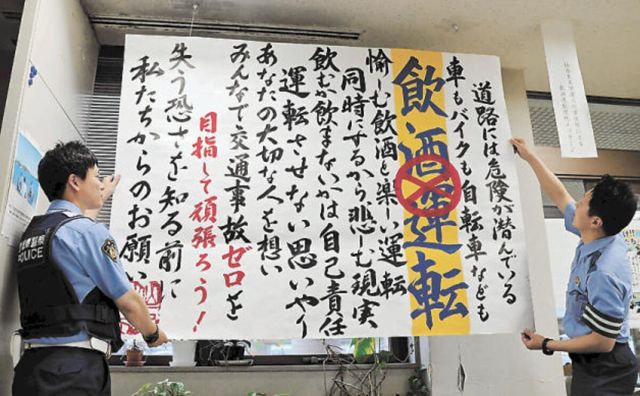 道路には危険が潜んでいる
車もバイクも自転車なども
飲酒運転
愉しむ飲酒と楽しい運転
同時にするから悲しむ現実
飲むか飲まないかは自己責任
運転させない思いやり
あなたの大切な人を想い
みんなで交通事故ゼロを
目指して頑張ろう！
失う恐さを知る前に
私たちからのお願い
POLICE